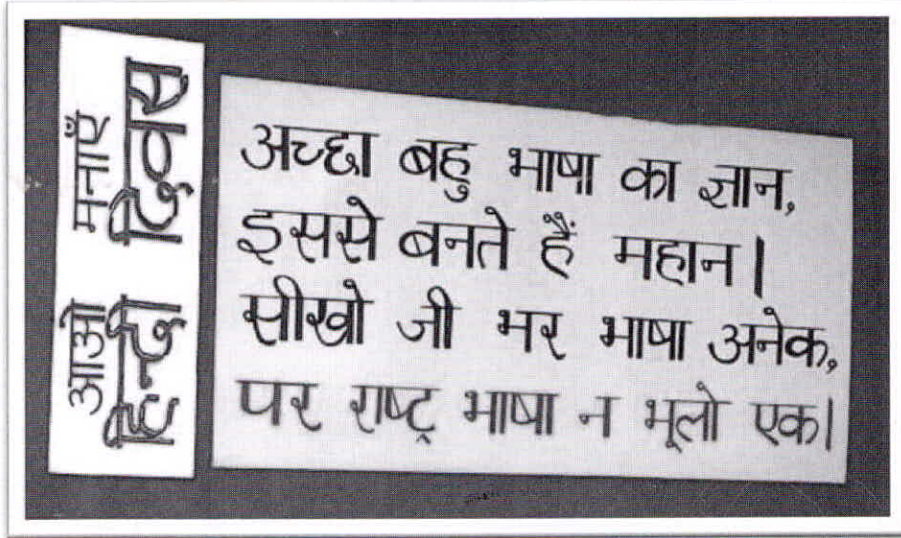 आओ मनाएँ
हिन्दी दिवस
अच्छा बहु भाषा का ज्ञान,
इससे बनते हैं महान।
सीखो जी भर भाषा अनेक,
पर राष्ट्र भाषा न भूलो एक।